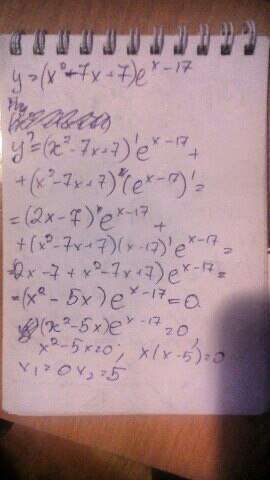 y=(x²-7x+7)e^x-17
y'=(x²-7x+7)'e^x-17 +
+(x²-7x+7)(e^x-17)'=
=(2x-7)e^x-17 +
+(x²-7x+7)(x-17)'e^x-17=
=(2x-7+x²-7x+7)e^x-17=
=(x²-5x)e^x-17=0
(x²-5x)e^x-17=0
x²-5x=0; x(x-5)=0
x₁=0 x₂=5